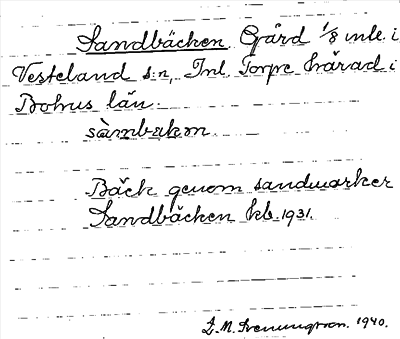 Sandbäcken Gård 1/8 mtl. i
Vesteland s:n, Inl. Torpe härad i
Bohus län.
sànnbækən
Bäck genom sandmarker
Sandbäcken kb. 1931.
1940.